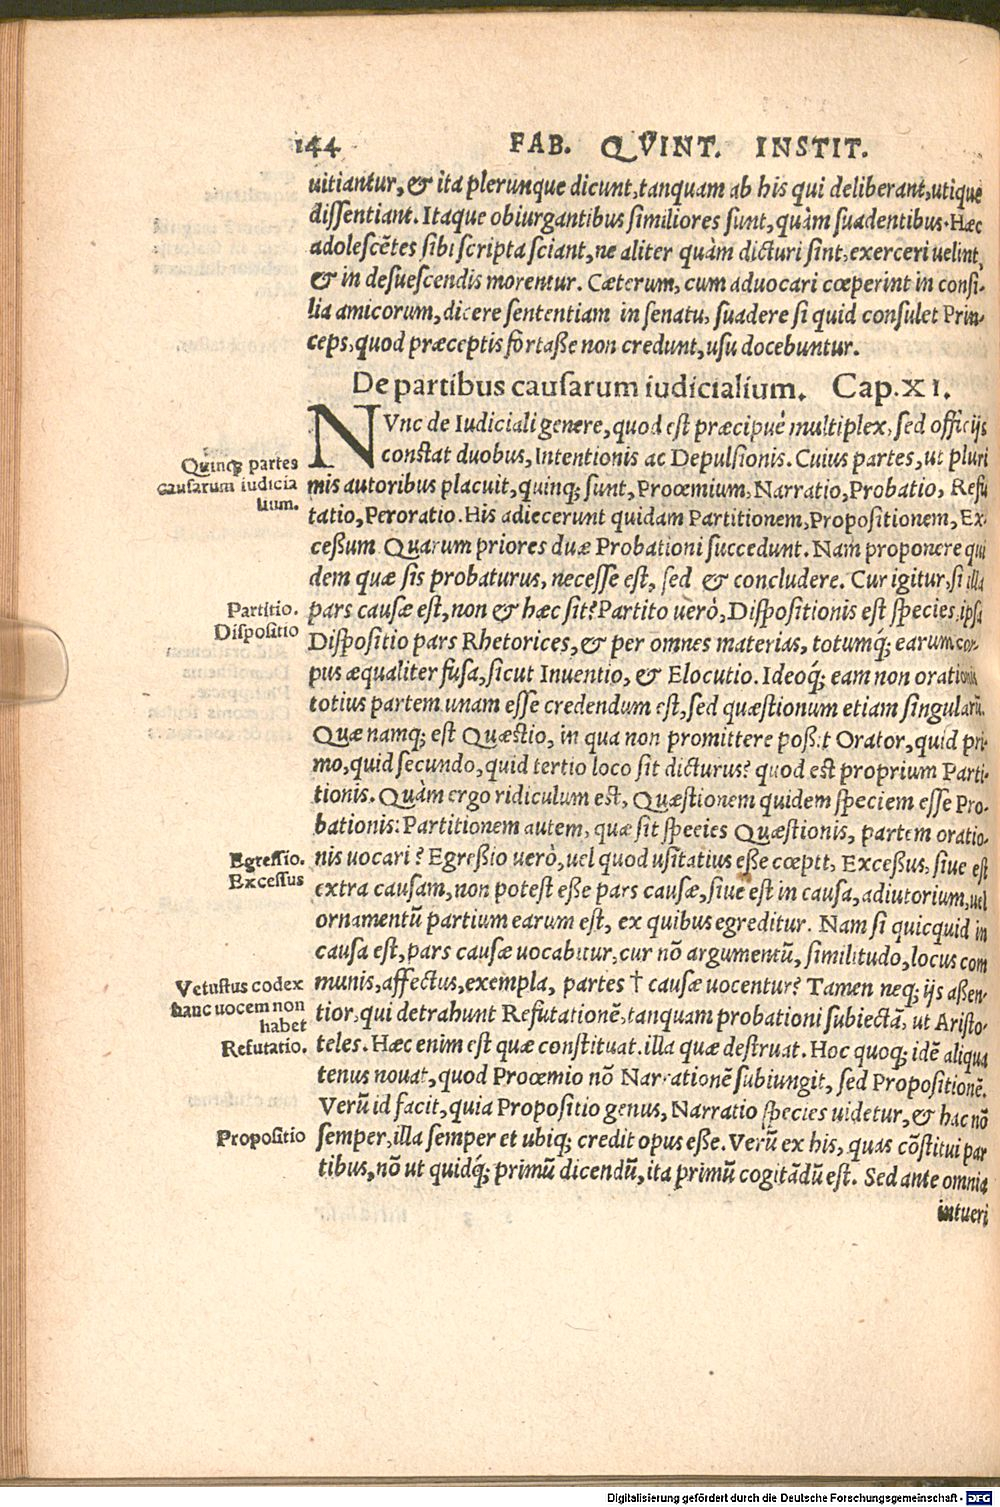 144 FAB. QVINT. INSTIT.
uitiantur, & ita plerunque dicunt, tanquam ab his qui deliberant, utique
dissentiant. Itaque obiurgantibus similiores sunt, quàm suadentibus. Hæc
adolescẽtes sibi scripta sciant, ne aliter quàm dicturi sint, exerceri uelint,
& in desuescendis morentur. Cæterum, cum aduocari cœperint in consi-
lia amicorum, dicere sententiam in senatu, suadere si quid consulet Prin-
ceps, quod præceptis fortaße non credunt, usu docebuntur.
De partibus causarum iudicialium. Cap. XI.
NVnc de Iudiciali genere, quod est præcipuè multiplex, sed officijs
constat duobus, Intentionis ac Depulsionis. Cuius partes, ut pluri
Quinq; partes
causarum iudicia
lium.
mis autoribus placuit, quinq; sunt, Prooemium, Narratio, Probatio, Refu
tatio, Peroratio. His adiecerunt quidam Partitionem, Propositionem, Ex-
ceßum. Quarum priores duæ Probationi succedunt. Nam proponere qui
dem quæ sis probaturus, necesse est, sed & concludere. Cur igitur, si illa
Partitio.
pars causæ est, non & hæc sit? Partito uerò, Dispositionis est species, ipsa
Dispositio
Dispositio pars Rhetorices, & per omnes materias, totumq́; earum cor-
pus æqualiter fusa, sicut Inuentio, & Elocutio. Ideoq́; eam non orationis
totius partem unam esse credendum est, sed quæstionum etiam singularũ.
Quæ namq; est Quæstio, in qua non promittere poßit Orator, quid pri-
mo, quid secundo, quid tertio loco sit dicturus? quod est proprium Parti-
tionis. Quàm ergo ridiculum est, Quæstionem quidem speciem esse Pro-
bationis: Partitionem autem, quæ sit species Quæstionis, partem oratio-
Egressio.
nis uocari? Egreßio uerò, uel quod usitatius eße cœptt, Exceßus, siue est
Excessus
extra causam, non potest eße pars causæ, siue est in causa, adiutorium, uel
ornamentũ partium earum est, ex quibus egreditur. Nam si quicquid in
causa est, pars causæ uocabitur, cur nõ argumentũ, similitudo, locus com
Vetustus codex
hanc uocem non
habet
munis, affectus, exempla, partes † causæ uocentur? Tamen neq; ijs aßen-
tior, qui detrahunt Refutationẽ, tanquam probationi subiectã, ut Aristo-
Refutatio.
teles. Hæc enim est quæ constituat. illa quæ destruat. Hoc quoq; idẽ aliqua
tenus nouat, quod Prooemio nõ Narrationẽ subiungit, sed Propositionẽ.
Verũ id facit, quia Propositio genus, Narratio species uidetur, & hac nõ
Propositio
semper, illa semper et ubiq; credit opus eße. Verũ ex his, quas cõstitui par
tibus, nõ ut quidq́; primũ dicendũ, ita primũ cogitãdũ est. Sed ante omnia
intueri
Digitalisierung gefördert durch die Deutsche Forschungsgemeinschaft - DFG